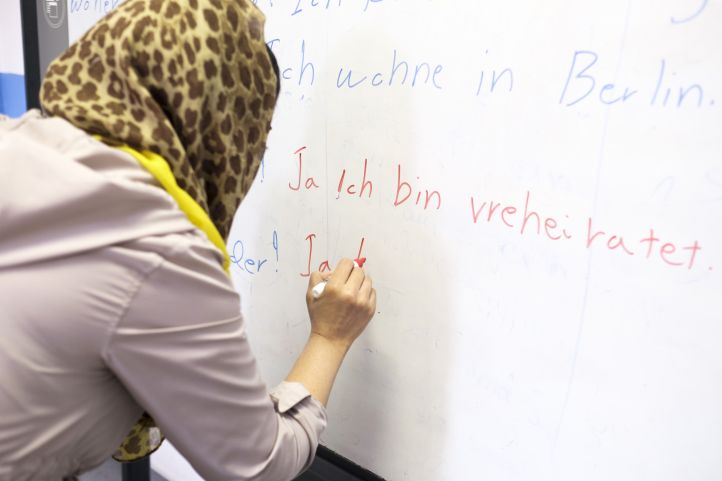 Ich
ich wohne in Berlin.
! Ja Ich bin vreheiratet.
der! Ja